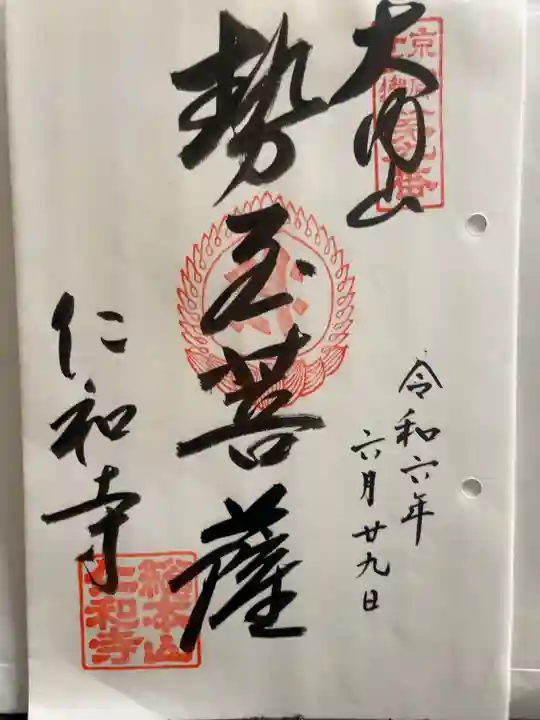 大内山
勢至菩薩
仁和寺
令和六年
六月廿九日
総本山
仁和寺